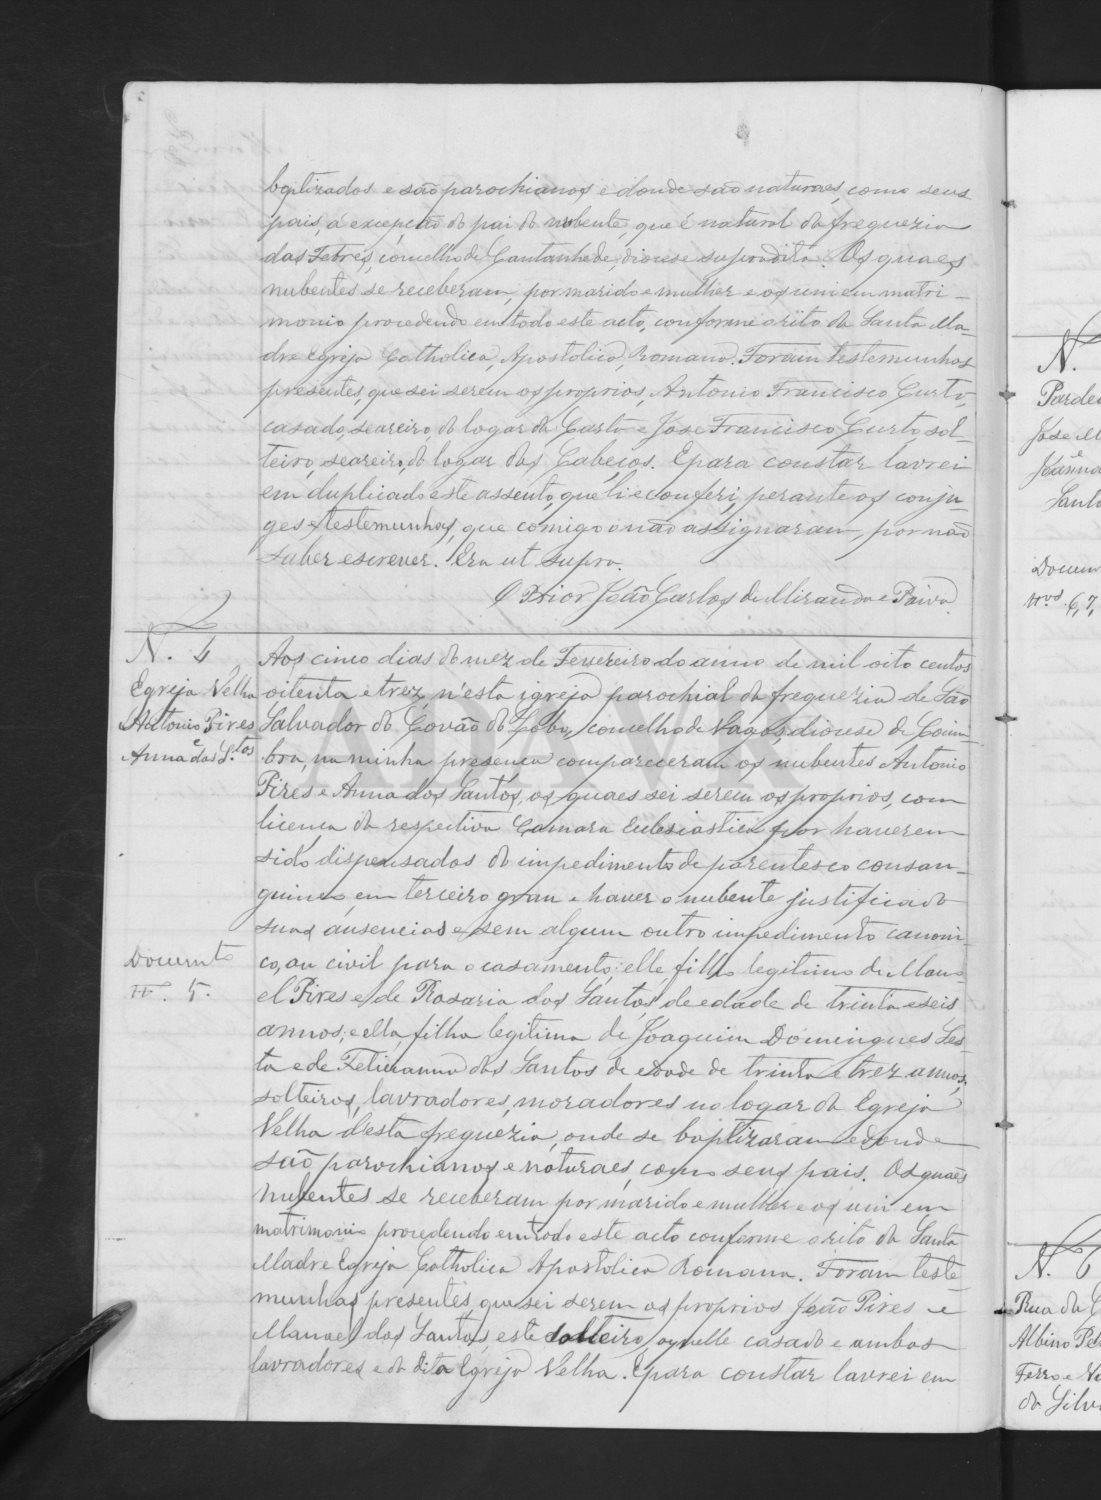 baptizados e são parochianos e donde são naturaes, como seus
pais, á excepção do pai do nubente, que é natural da freguezia
das Febres, concelho de Cantanhede, diocese supradita. Os quaes
nubentes se receberam, por marido e mulher e os uni em matri-
monio procedendo em todo este acto, conforme o rito da Santa Ma-
dre Egreja Catholica, Apostolica, Romana. Foram testemunhas
presentes, que sei serem os proprios, Antonio Francisco Curto,
casado, seareiro, do logar da e José Francisco Curto, sol-
teiro, seareiro, do logar dos Cabeços. E para constar lavrei
em duplicado este assento, que li e conferi, perante os conju-
ges e testemunhas, que comigo o não assignaram, por não
saber escrever. Era ut supra.
O Prior João Carlos de Miranda e Paiva.
N. 4
Egreja Velha
Antonio Pires
e
Anna dos S.tos
Documento
N. 5.
Aos cinco dias do mez de Fevereiro do anno de mil oito centos
oitenta e trez, n'esta igreja parochial da freguezia de São
Salvador do Covão do Lobo, concelho de Vagos, diocese de Coim-
bra, na minha presença compareceram os nubentes Antonio
Pires e Anna dos Santos, os quaes sei serem os proprios, com
licença da respectiva Camara Eclesiastica, por haverem
sido dispensados do impedimento de parentesco consan-
guineo em terceiro grau e haver o nubente justificado
suas ausencias e sem algum outro impedimento canoni-
co, ou civil para o casamento; elle filho legitimo de Manu-
el Pires e de Rosaria dos Santos, de edade de trinta e seis
annos; e ella, filha legitima de Joaquim Domingues Ses-
ta e de Feliciana dos Santos de edade de trinta e trez annos,
solteiros, lavradores, moradores no logar da Egreja
Velha d'esta freguezia, onde se baptizaram e donde
são parochianos e naturaes, como seus pais. Os quaes
nubentes se receberam por marido e mulher e os uni em
matrimonio procedendo em todo este acto conforme o rito da Santa
Madre Egreja Catholica Apostolica Romana. Foram teste-
munhas presentes, que sei serem os proprios João Pires e
Manoel dos Santos, este solteiro, aquelle casado e ambos
lavradores e da dita Egreja Velha. E para constar lavrei em
N.
José M
e
Joanna
N.os 6, 7,
N. 6
Rua da
Albino
Ferro e
da Silva